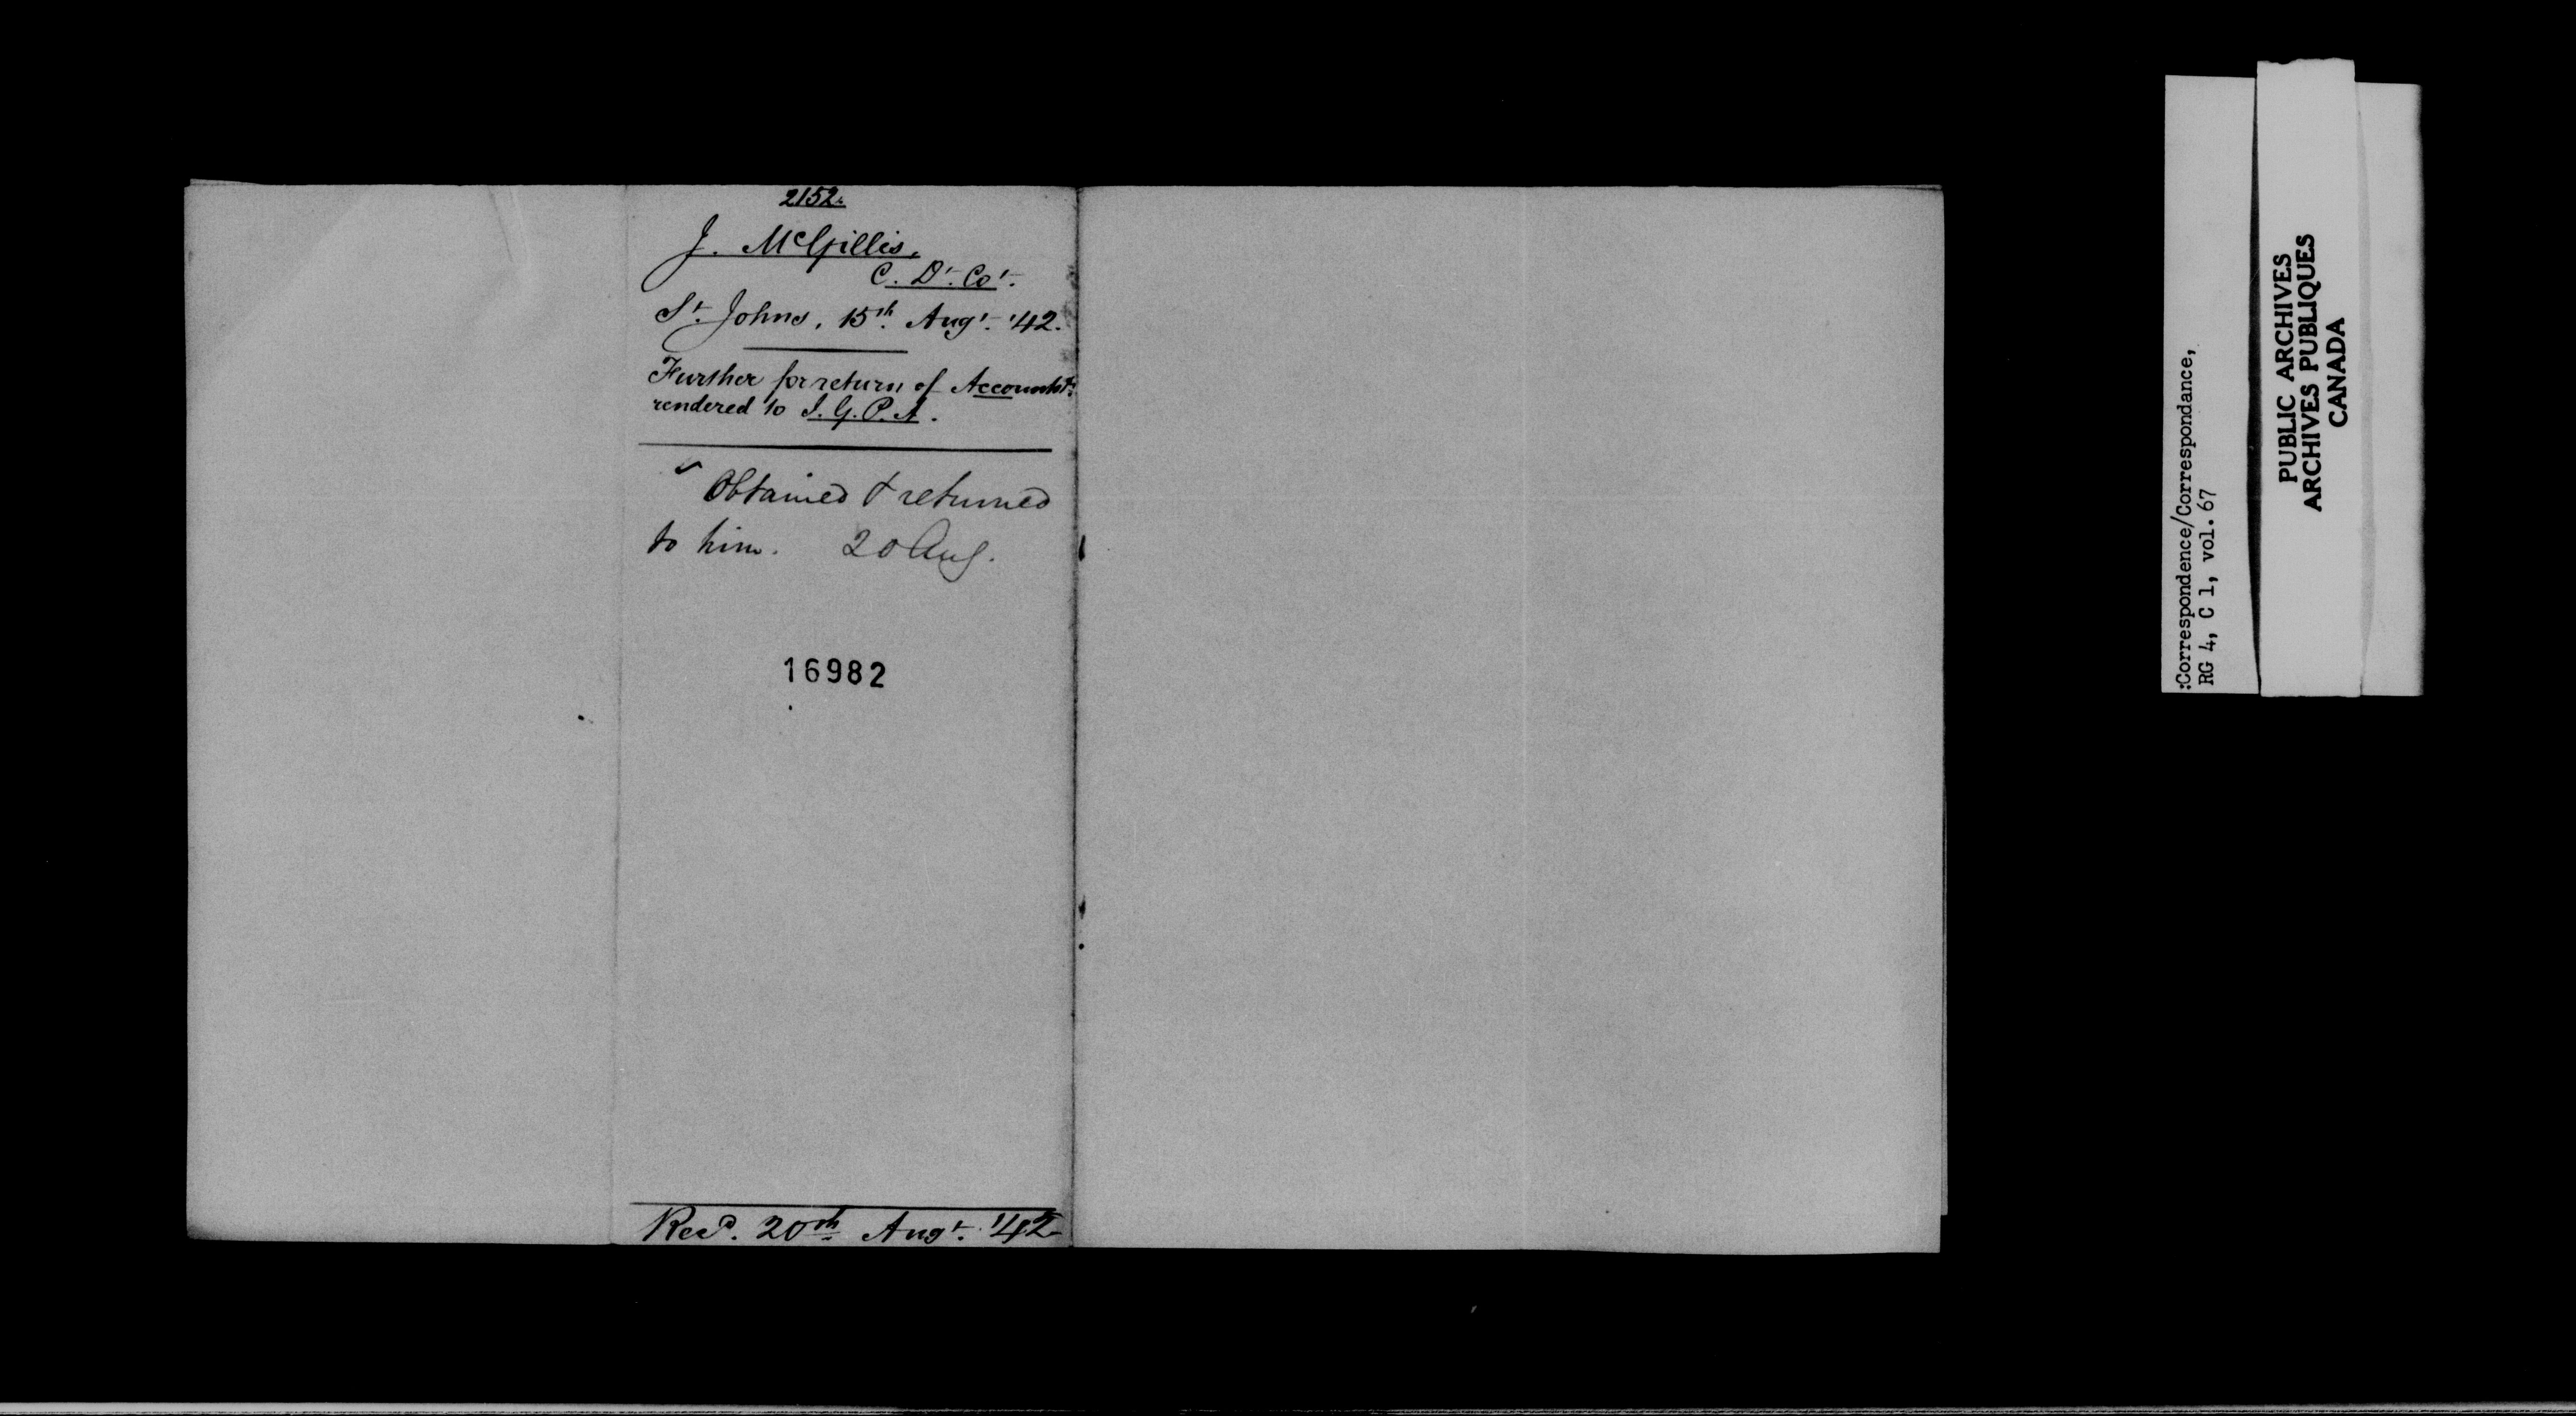 2152.
J. McGillis,
C. Dt. Cot.
St. Johns, 15th Augt. '42.
Further for return of Accounts
rendered to I. G. P. A.
Obtained & returned
to him. 20 Aug.
16982
Recd. 20th Augt. '42
:Correspondence/Correspondance,
RG 4, C 1, vol. 67
PUBLIC ARCHIVES
ARCHIVES PUBLIQUES
CANADA